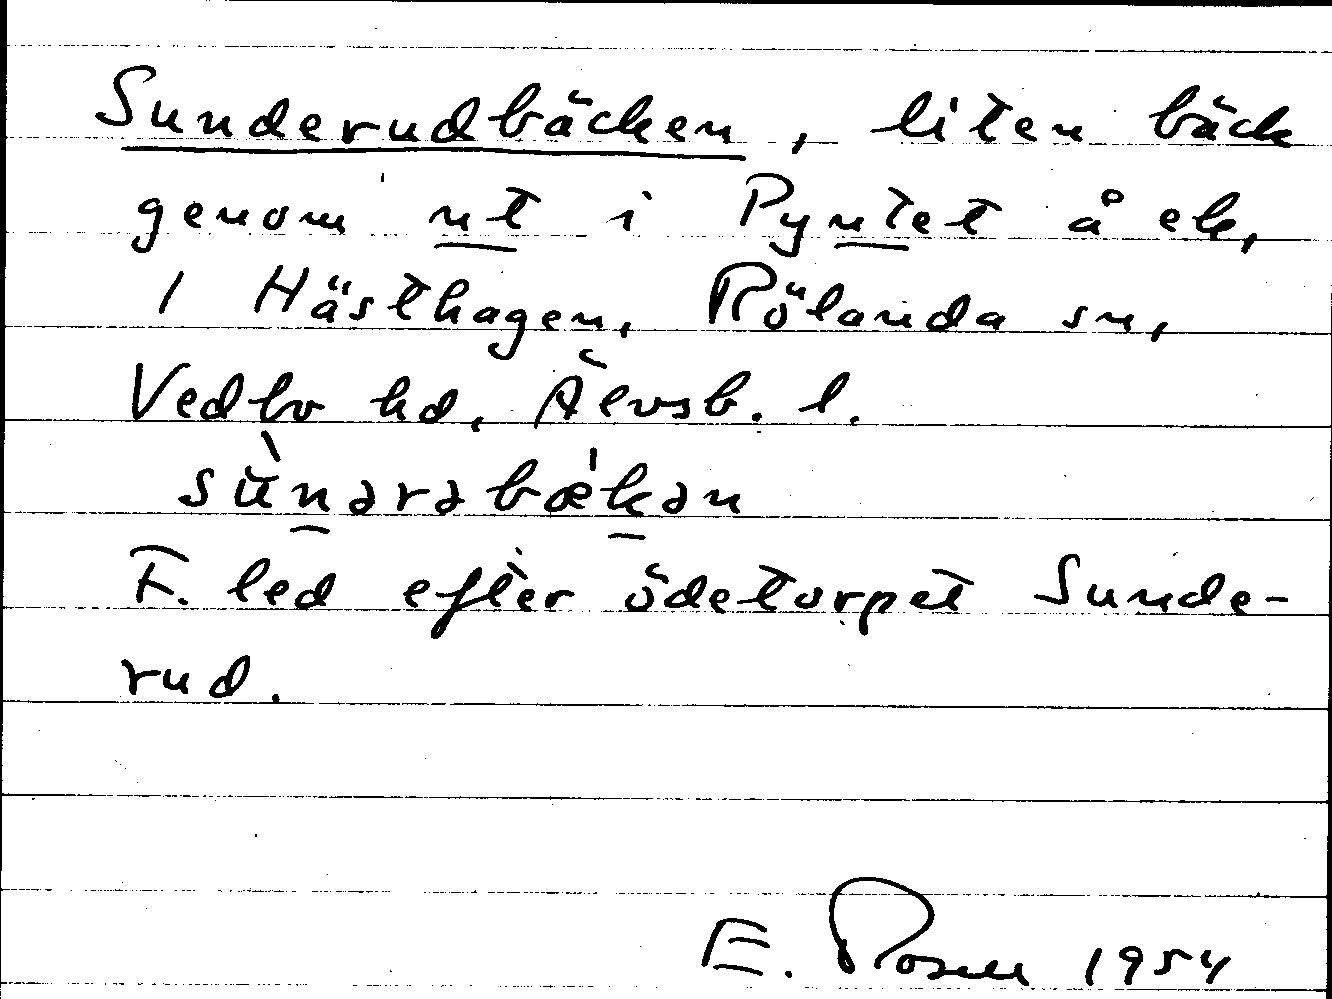 Sunderudbäcken, liten bäck
genom nt i Pyntet å ek,
1 Hästhagen, Rölanda sn,
Vedbo hd, Älvsb. l.
sùnərəbæ'kən
F. led efter ödetorpet Sunde-
rud.
E. Rosell 1954